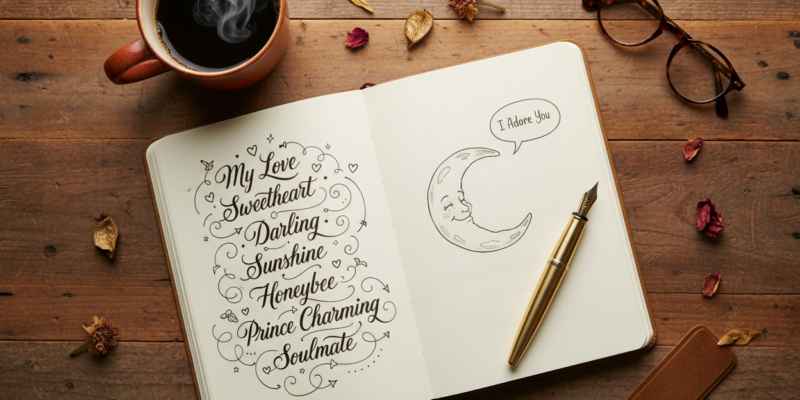 My Love
Sweetheart
Darling
Sunshine
Honeybee
Prince Charming
Soulmate
I Adore You